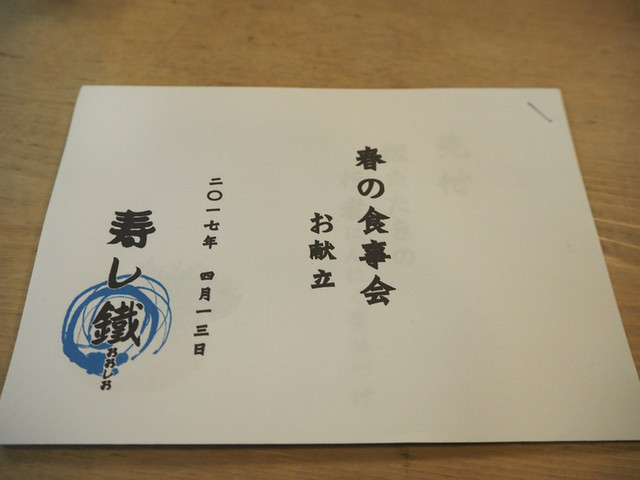 春の食事会
お献立
二〇一七年 四月一三日
寿し鐵
おおしお